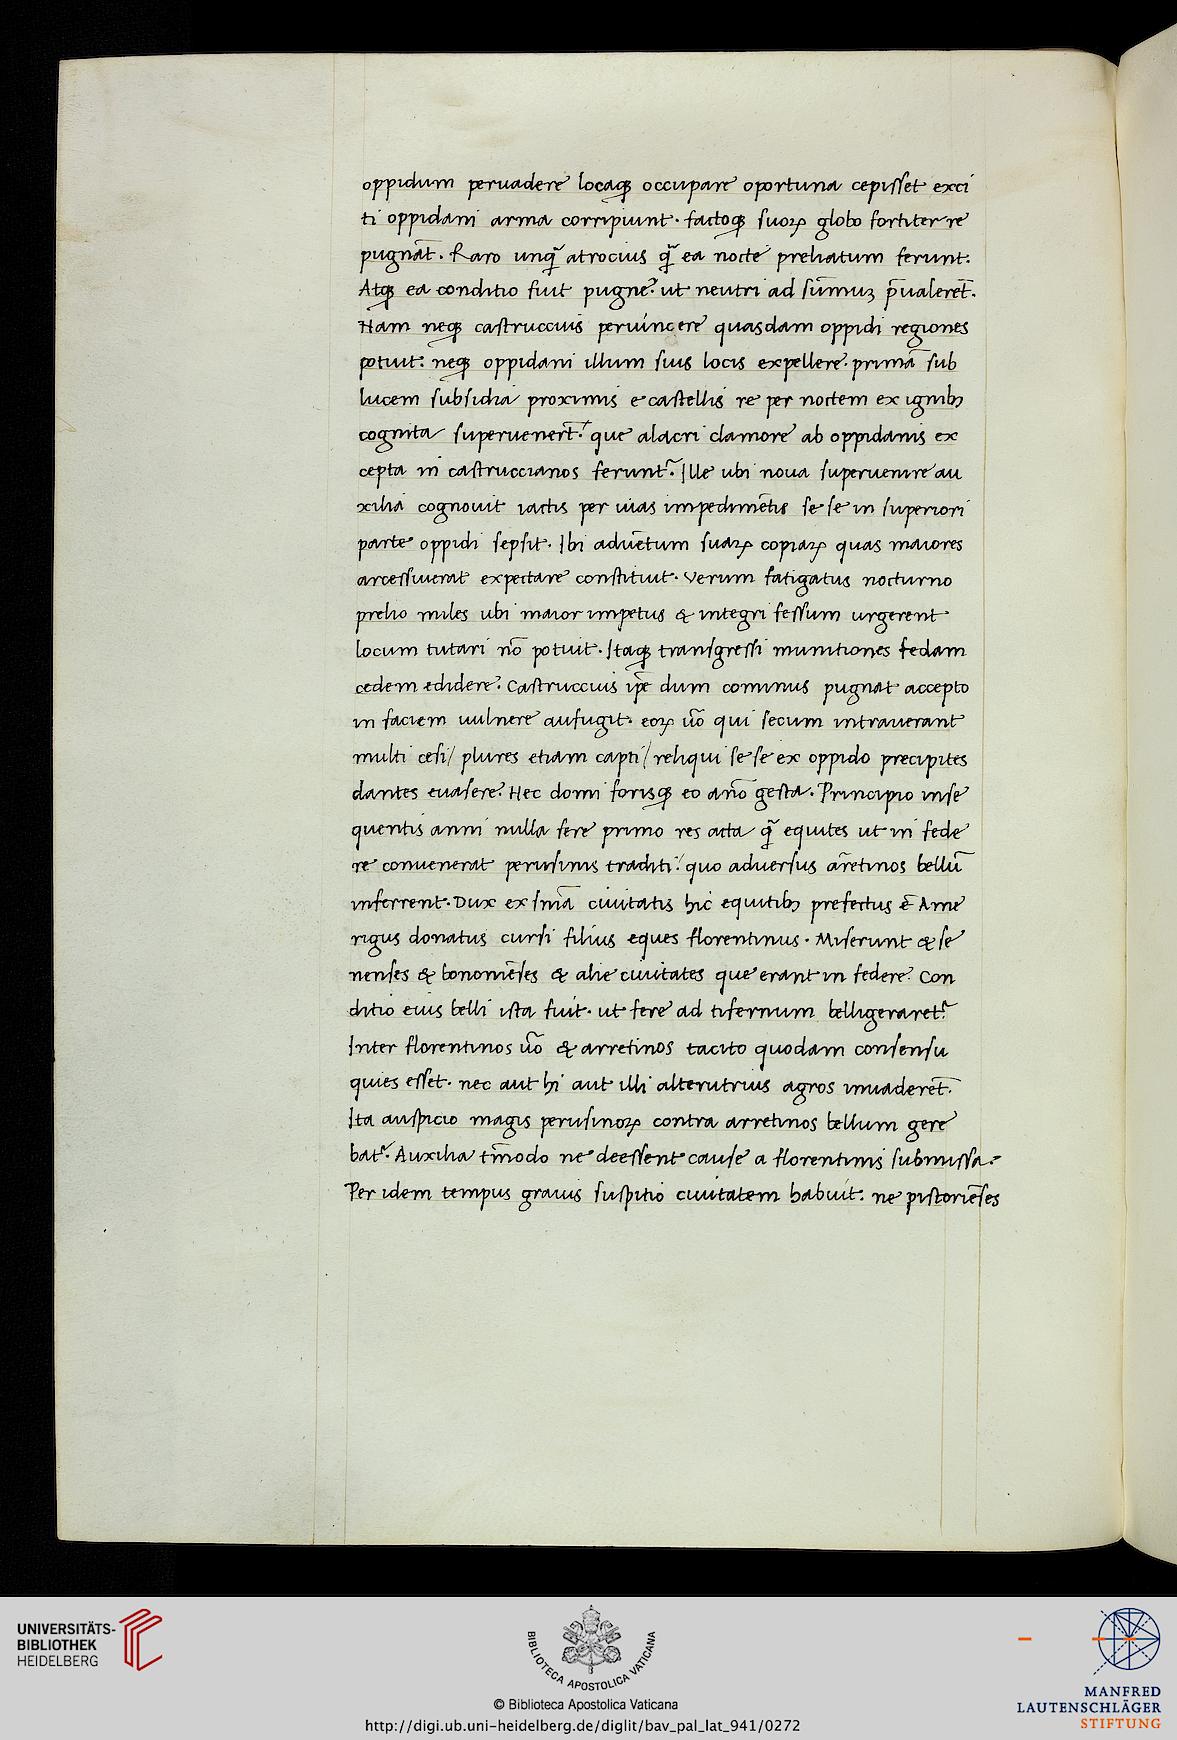 oppidum peruadere locaqꝫ occupare oportuna cepisset exci
ti oppidani arma corripiunt · factoqꝫ suoꝝ globo fortiter re
pugnāt · Raro unq̃ atrocius q̃ ea nocte preliatum ferunt:
Atqꝫ ea conditio fuit pugne? ut neutri ad sūmuꝫ p̄ualeret̄.
Ham neqꝫ castruccius peruincere quasdam oppidi regiones
potuit: neqꝫ oppidani illum suis locis expellere · primā sub
lucem subsidia proximis e castellis re per noctem ex ignibꝫ
cognita superuenert̄: que alacri clamore ab oppidanis ex
cepta in castruccianos ferunt᷑. Ille ubi noua superuenire au
xilia cognouit iactis per uias impedimētis se se in superiori
parte oppidi sepsit · Ibi aduētum suaꝝ copiaꝝ quas maiores
arcessiuerat expectare constituit · Verum fatigatus nocturno
prelio miles ubi maior impetus & integri fessum urgerent
locum tutari nō potuit · Itaqꝫ transgressi munitiones fedam
cedem edidere? Castruccius ip̄e dum cominus pugnat accepto
in faciem uulnere aufugit · eoꝝ ūo qui secum intrauerant
multi cesi/ plures etiam capti/ reliqui se se ex oppido precipites
dantes euasere? Hec domi forisqꝫ eo an̄o gesta · Principio inse
quentis anni nulla fere primo res acta q̃ equites ut in fede
re conuenerat perusinis traditi: quo aduersus ar̄etinos bellū
inferrent · Dux ex sn̄ia ciuitatis hic equitibꝫ prefectus ē Ame
rigus donatus cursi filius eques florentinus · Miserunt & se
nenses & bononiēses & alie ciuitates que erant in federe? Con
ditio eius belli ista fuit · ut fere ad tifernum belligeraret᷑.
Inter florentinos ūo & arretinos tacito quodam consensu
quies esset · nec aut hi aut illi alterutrius agros inuaderet̄.
Ita auspicio magis perusinoꝝ contra arretinos bellum gere
bat᷑. Auxilia tm̄odo ne deessent cause a florentinis submissa.
Per idem tempus grauis suspitio ciuitatem habuit: ne pistoriēses
UNIVERSITÄTS-
BIBLIOTHEK
HEIDELBERG
BIBLIOTECA APOSTOLICA VATICANA
© Biblioteca Apostolica Vaticana
http://digi.ub.uni-heidelberg.de/diglit/bav_pal_lat_941/0272
MANFRED
LAUTENSCHLÄGER
STIFTUNG